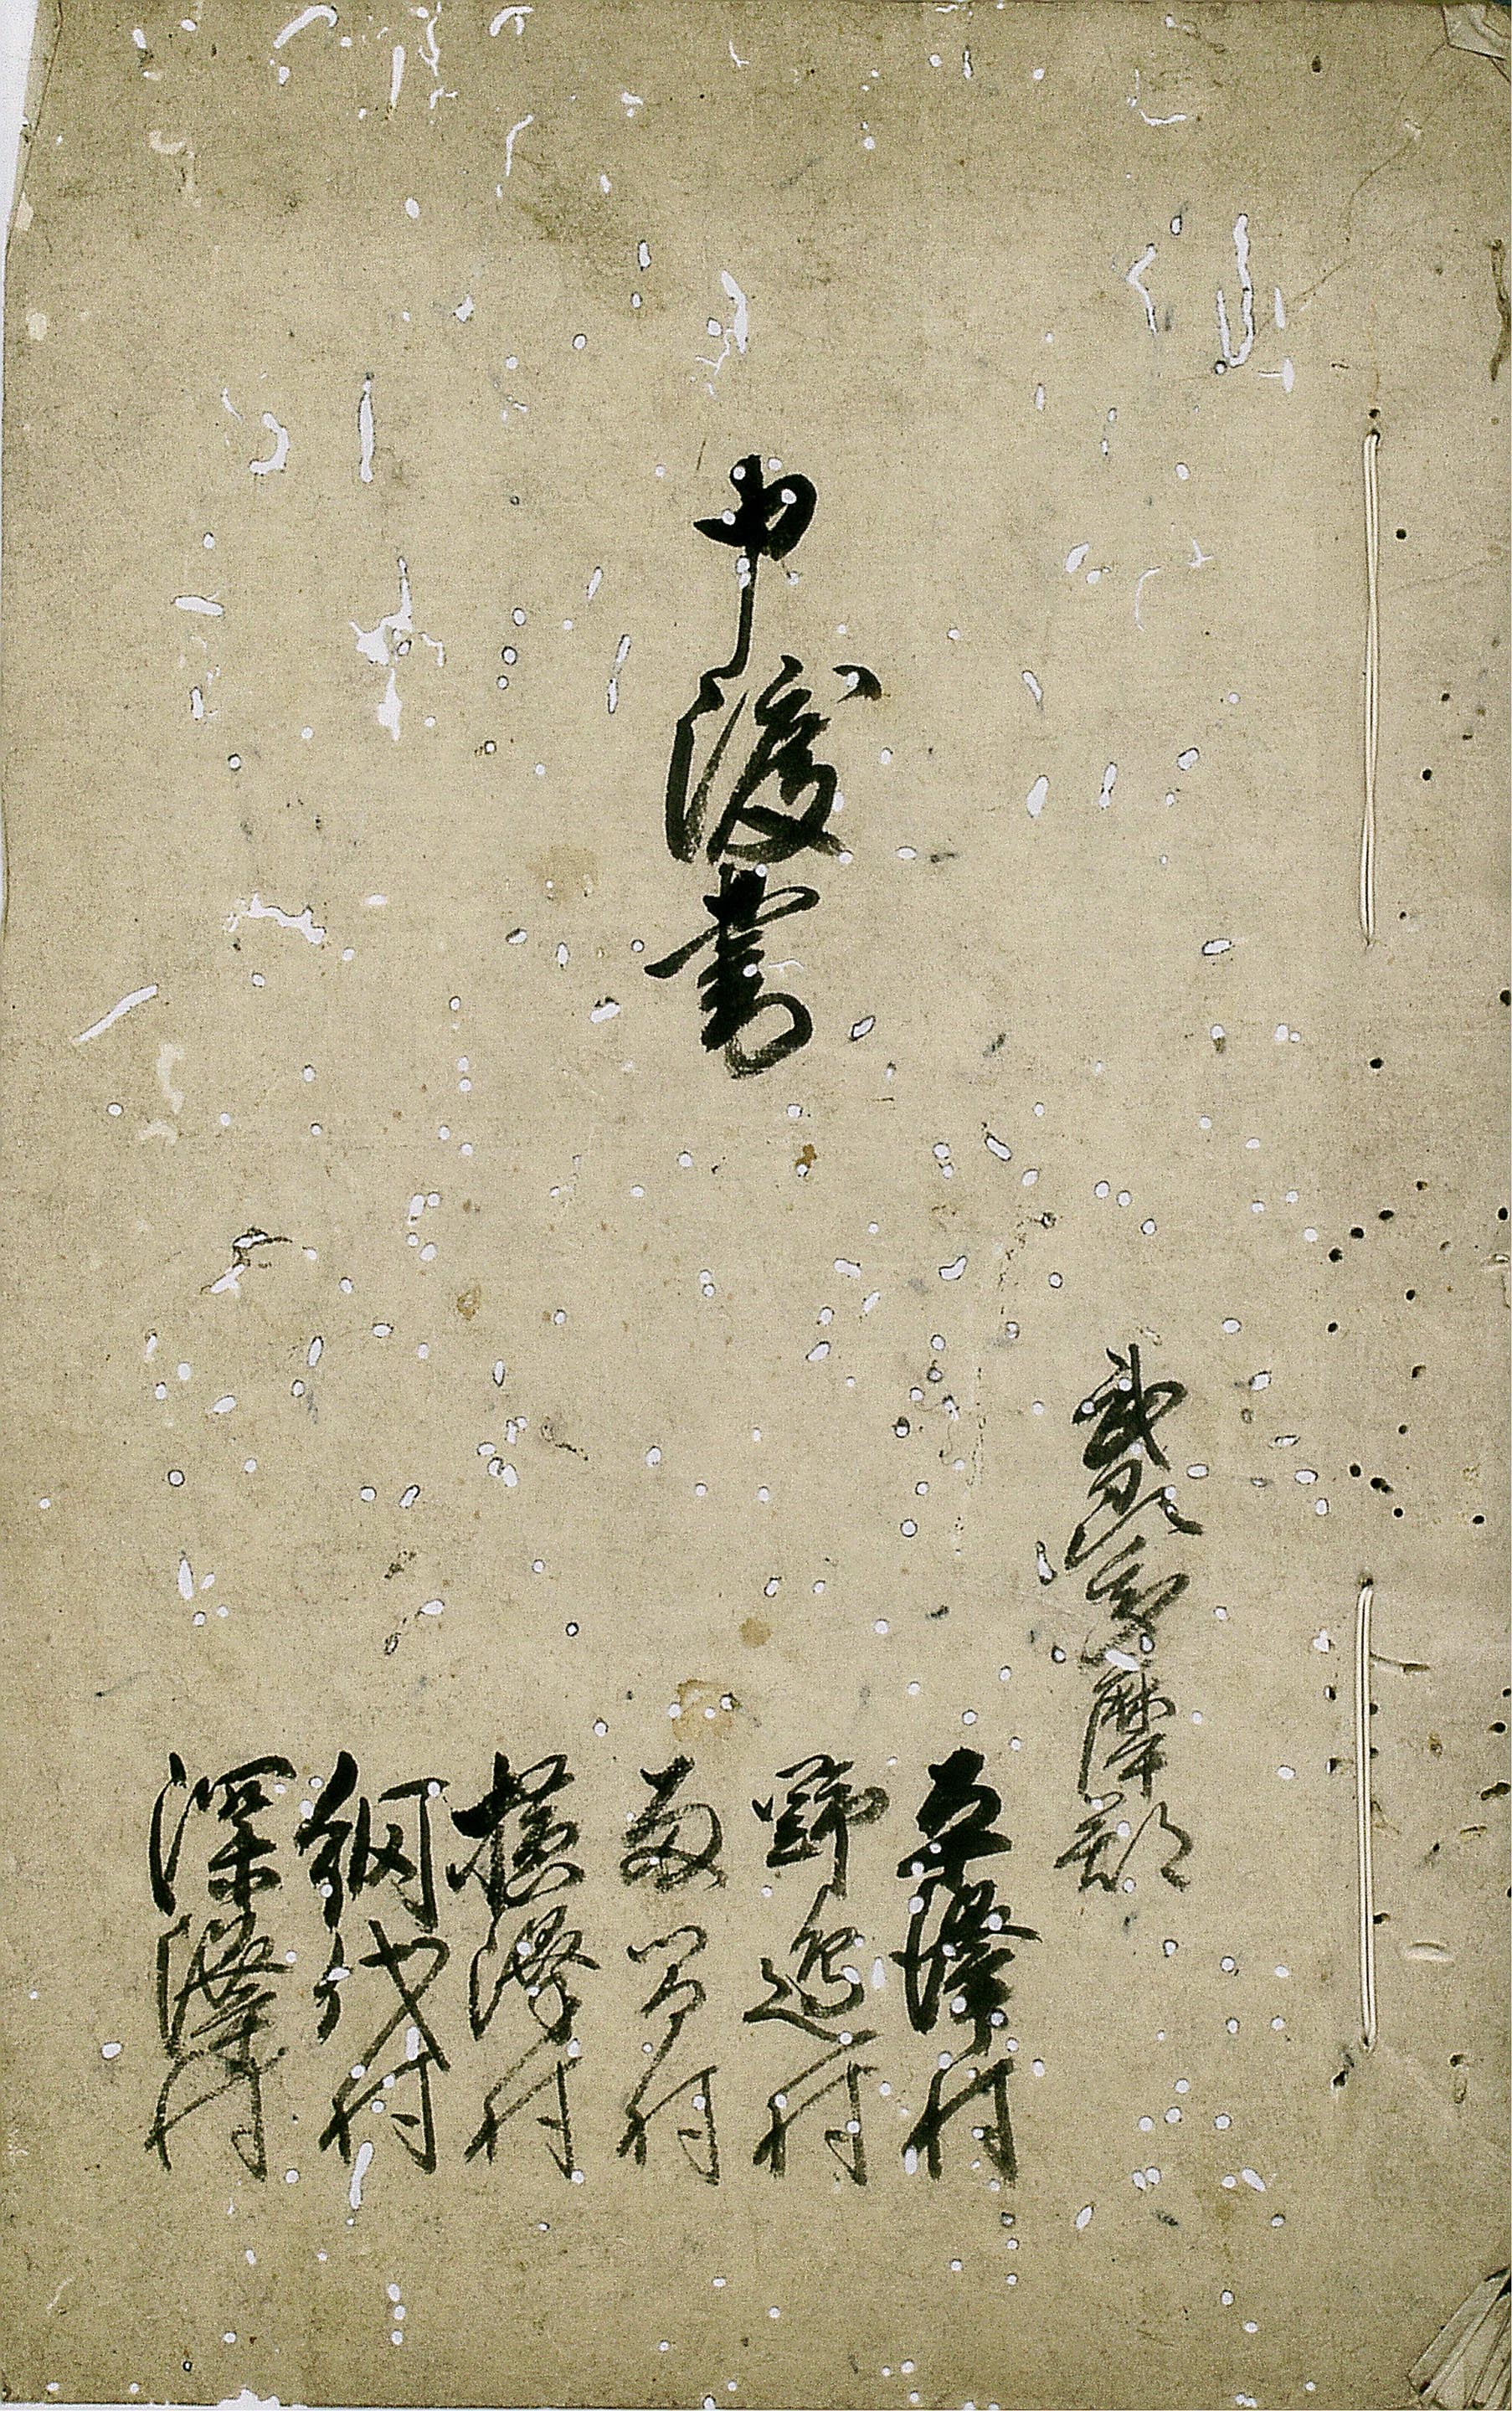 申渡書
武州多摩郡
澤村
野邊村
雨間村
横澤村
網代村
深澤村